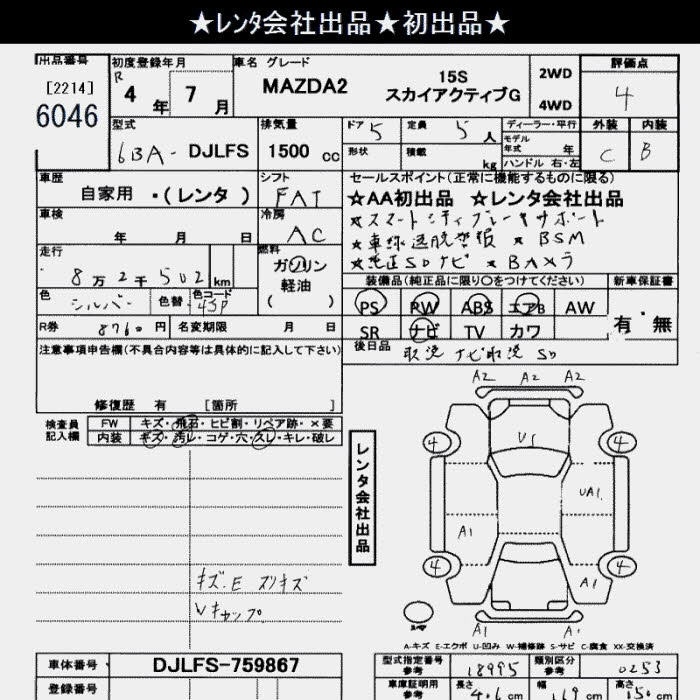 ★レンタ会社出品★初出品★
出品番号 初度登録年月 車名 グレード 評価点
[2214] R 4年 7月 MAZDA2 15S スカイアクティブG 2WD 4WD 4
6046
型式 排気量 ドア 5 定員 5人 ディーラー・平行 外装 内装
6BA-DJLFS 1500cc 形状 積載 kg モデル年式 年 C B
ハンドル 右・左
車歴 シフト セールスポイント(正常に機能するものに限る)
自家用 ・(レンタ) FAT ★AA初出品 ★レンタ会社出品
車検 冷房 ★スマートシティブレーキサポート
年 月 日 AC ★車線逸脱警報 ★BSM
走行 燃料 ★純正SDナビ ★Bカメラ
8万2千502km ガソリン 軽油 ( )
装備品(純正品に限り○をつけてください) 新車保証書
色 シルバー 色替 色コード 45P PS PW ABS エアB AW 有・無
R券 8760円 名変期限 月 日 SR ナビ TV カワ
注意事項申告欄(不具合内容等は具体的に記入して下さい) 後日品 取説 ナビ取説 SD
修復歴 有 [箇所 ]
検査員記入欄 FW キズ・飛石・ヒビ割・リペア跡・×要
内装 キズ・汚レ・コゲ・穴・スレ・キレ・破レ
レンタ会社出品
A2 A2 A2
4 U1 4
UA1
A1
4 4
A1
A1
キズ.E スリキズ
Vキャップ
A-キズ E-エクボ U-凹み W-補修跡 S-サビ C-腐食 XX-交換済
車体番号 DJLFS-759867 型式指定番号 参考 18995 類別区分 参考 0253
登録番号 車庫証明用 参考 長さ 406cm 幅 169cm 高さ 150cm